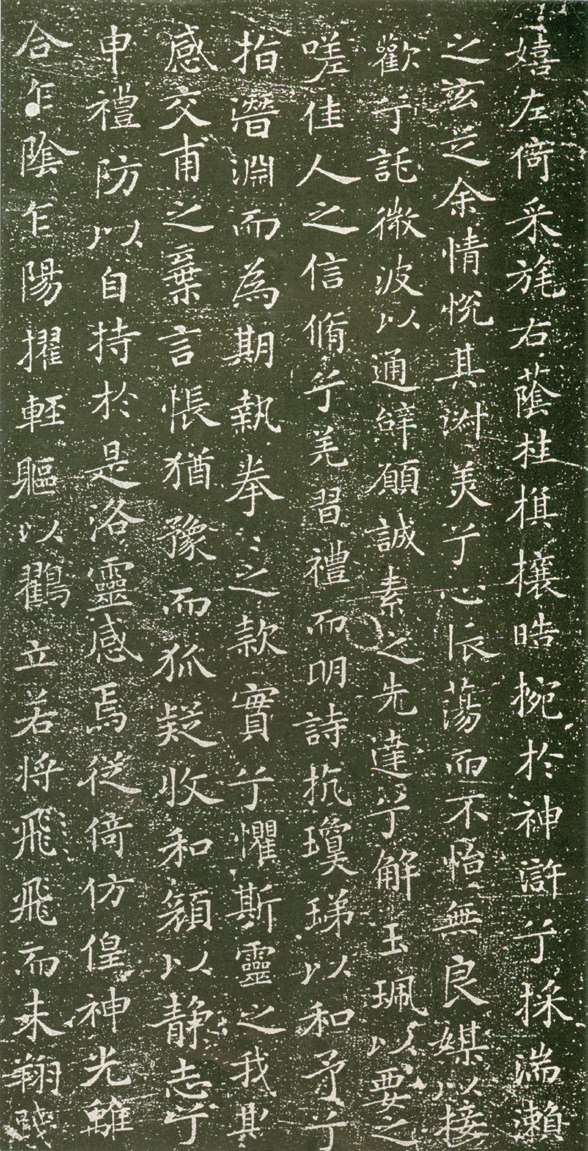 嬉左倚采旄右蔭桂棋攘晧捥於神滸兮採湍瀨
之玄芝余情悅其淑美兮心振蕩而不怡無良媒以接
歡兮託微波以通辭願誠素之先達兮解玉珮以要之
嗟佳人之信脩兮羌習禮而明詩抗瓊珶以和予兮
指潛淵而為期執拳〻之款實兮懼斯靈之我欺
感交甫之棄言悵猶豫而狐疑收和顏以靜志兮
申禮防以自持於是洛靈感焉徙倚仿偟神光離
合乍陰乍陽擢輕軀以鶴立若將飛飛而未翔踐